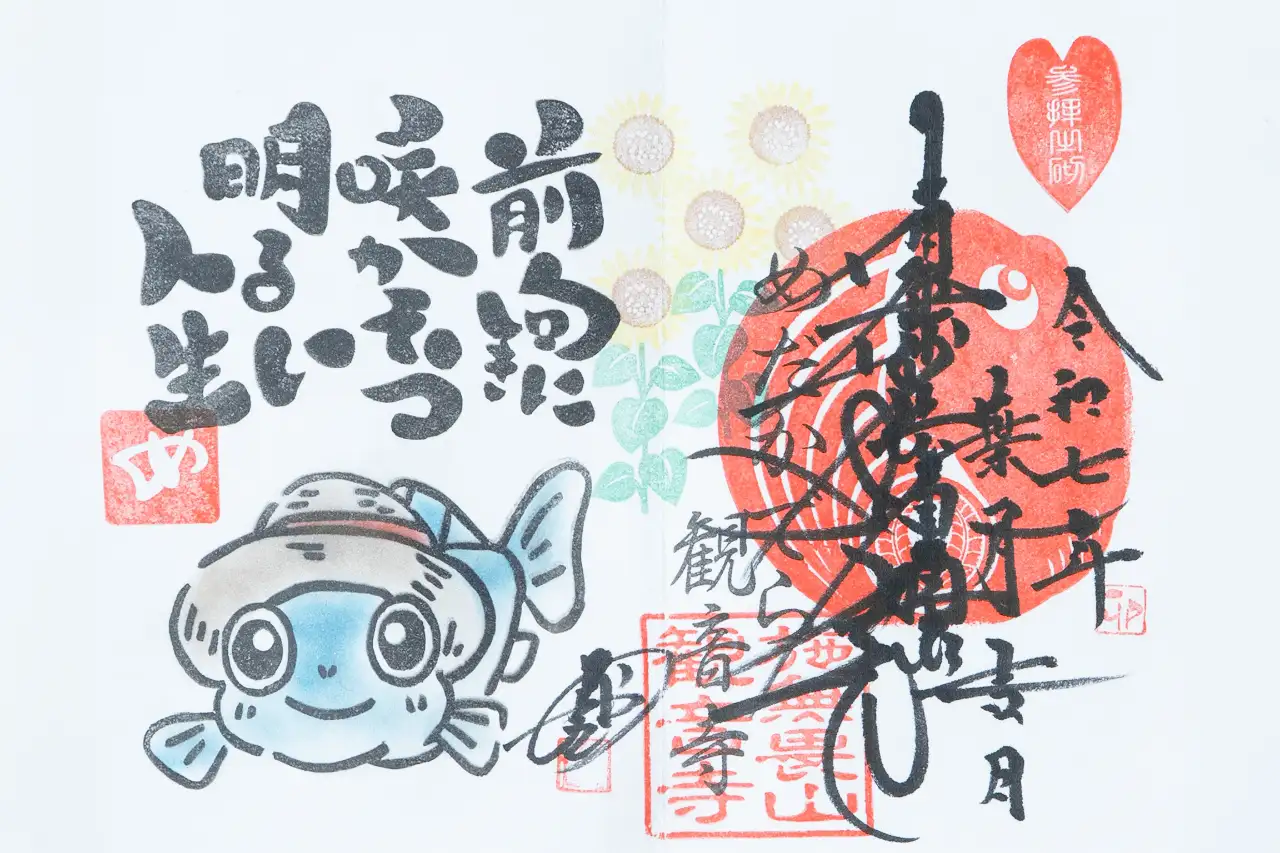 参拝之砌
令和七年
葉月吉日
めだかでら
観音寺
施無畏山
観音寺
前向きに
咲かそう
明るい
人生
め